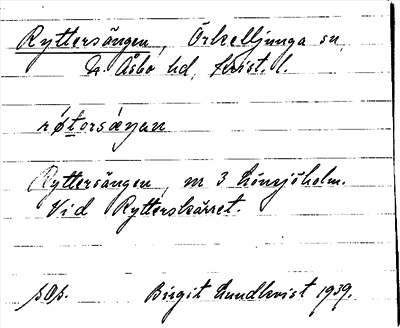 Ryttersängen, Örkelljunga sn,
N. Åsbo hd, Krist. l.
Ryttersängen, m 3 Lönsjöholm.
Vid Rytterskärret.
Birgit Lundkvist 1939.